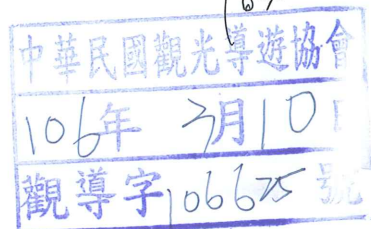 中華民國觀光導遊協會
106年 3月10日
觀導字106675號